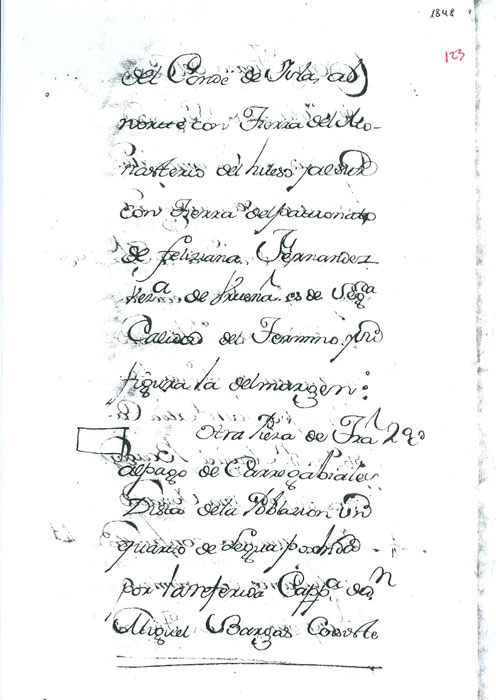 1848
123
del Conde de Ivla, al
norte con Tierra del Mo-
nasterio del hueso, y al sur
con Tierra del patronato
de feliziana Hernandez
vez.ª de Brueña. es de Seg.ª
Calidad del Termino. y su
figura la del margen:
Otra Pieza de Tra
al pago de Carregabiales
Dista de la Poblazion Un
quarto de legua poseida
por la referida Capp.ª de Dn
Miguel Bargas Consiste